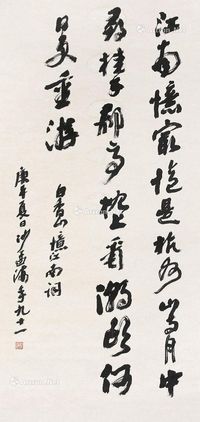 江南憶最憶是杭州山寺月中
尋桂子郡亭枕上看潮頭何
日更重游
白香山憶江南詞
庚午夏日沙孟海年九十一